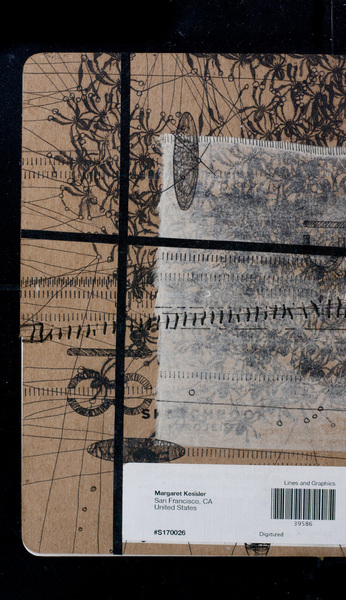 SKETCHBOOK
Lines and Graphics
Margaret Kessler
San Francisco, CA
United States
39586
#S170026
Digitized